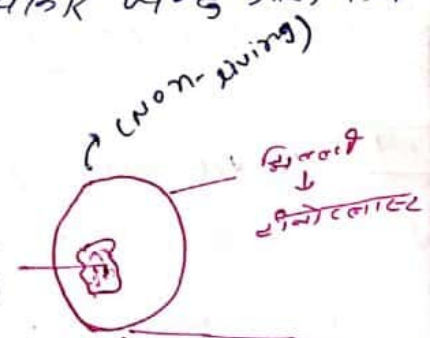 (Non-living)
झिल्ली
↓
टोनोप्लास्ट